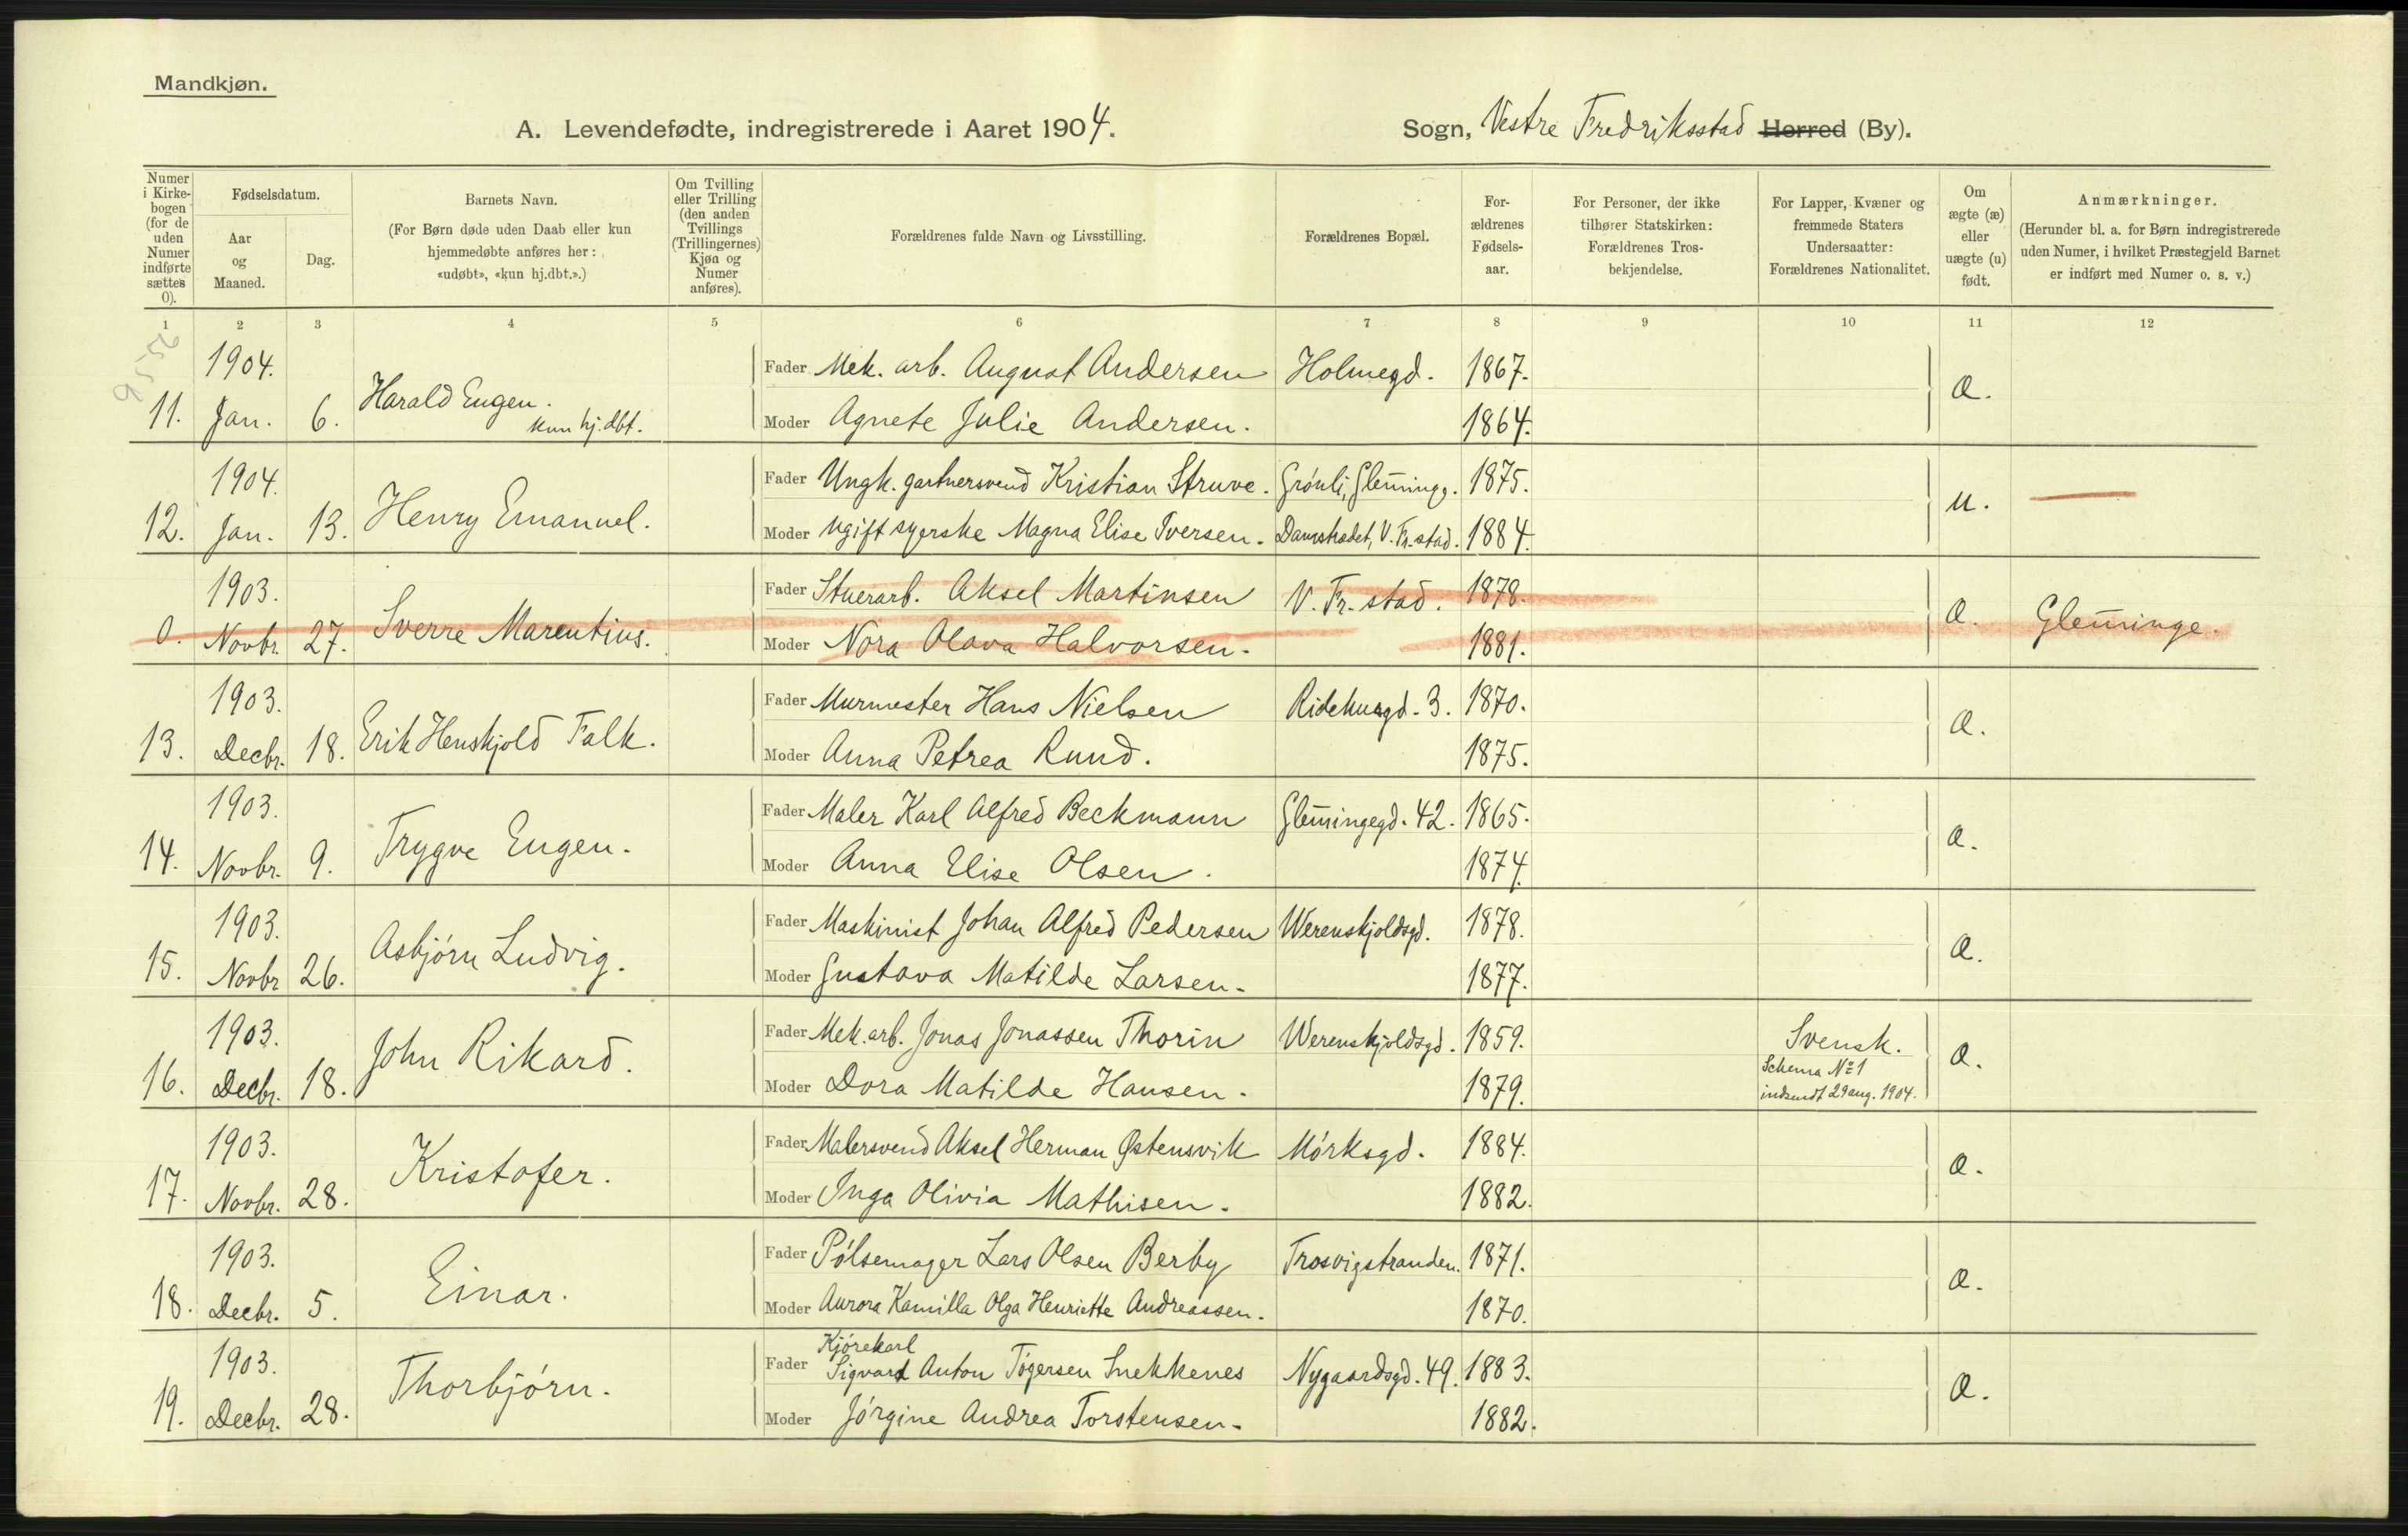 Mandkjøn.
A. Levendefødte, indregistrerede i Aaret 1904.
Sogn, Vestre Fredriksstad Herred (By).
Numer i Kirkebogen (for de uden Numer indførte sættes 0).
Fødselsdatum.
Aar og Maaned.
Dag.
Barnets Navn.
(For Børn døde uden Daab eller kun hjemmedøbte anføres her: «udøbt», «kun hj.dbt.».)
Om Tvilling eller Trilling (den anden Tvillings (Trillingernes) Kjøn og Numer anføres).
Forældrenes fulde Navn og Livsstilling.
Forældrenes Bopæl.
Forældrenes Fødselsaar.
For Personer, der ikke tilhører Statskirken: Forældrenes Trosbekjendelse.
For Lapper, Kvæner og fremmede Staters Undersaatter: Forældrenes Nationalitet.
Om ægte (æ) eller uægte (u) født.
Anmærkninger.
(Herunder bl. a. for Børn indregistrerede uden Numer, i hvilket Præstegjeld Barnet er indført med Numer o. s. v.)
1 2 3 4 5 6 7 8 9 10 11 12
1904.
11. Jan. 6. Harald Eugen. kun hj.dbt.
Fader Mek. arb. August Andersen Holmegd. 1867.
Moder Agnete Julie Andersen. 1864.
æ.
1904.
12. Jan. 13. Henry Emanuel.
Fader Ungk. gartnersvend Kristian Struve. Grónli, Glem̅inge. 1875.
Moder ugift syerske Magna Elise Iversen. Damstrædet, V. Fr.stad. 1884.
u. —
1903.
0. Novbr. 27. Sverre Marentius.
Fader Stuerarb. Aksel Martinsen V. Fr.stad. 1878.
Moder Nora Olava Halvorsen. 1881.
æ. Glem̅inge.
1903.
13. Decbr. 18. Erik Henskjold Falk.
Fader Murmester Hans Nielsen Ridehusgd. 3. 1870.
Moder Anna Petrea Ruud. 1875.
æ.
1903.
14. Novbr. 9. Trygve Eugen.
Fader Maler Karl Alfred Beckmann Glem̅ingegd. 42. 1865.
Moder Anna Elise Olsen. 1874.
æ.
1903.
15. Novbr 26. Asbjórn Ludvig.
Fader Maskinist Johan Alfred Pedersen Werenskjoldsgd. 1878.
Moder Gustava Matilde Larsen. 1877.
æ.
1903.
16. Decbr. 18. John Rikard.
Fader Mek. arb. Jonas Jonassen Thorin Werenskjoldsgd. 1859.
Moder Dora Matilde Hansen. 1879.
Svensk.
Schema No 1
indsendt 29 aug. 1904.
æ.
1903.
17. Novbr. 28. Kristofer.
Fader Malersvend Aksel Herman Østensvik Mórksgd. 1884.
Moder Inga Olivia Mathisen. 1882.
æ.
1903.
18. Decbr. 5. Einar.
Fader Pólsemager Lars Olsen Berby Trosvigstranden. 1871.
Moder Aurora Kamilla Olga Henriette Andreassen. 1870.
æ.
1903.
19. Decbr. 28. Thorbjórn.
Kjórekarl
Fader Sigvard Anton Tógersen Snekkenes Nygaardsgd. 49. 1883.
Moder Jórgine Andrea Torstensen. 1882.
æ.